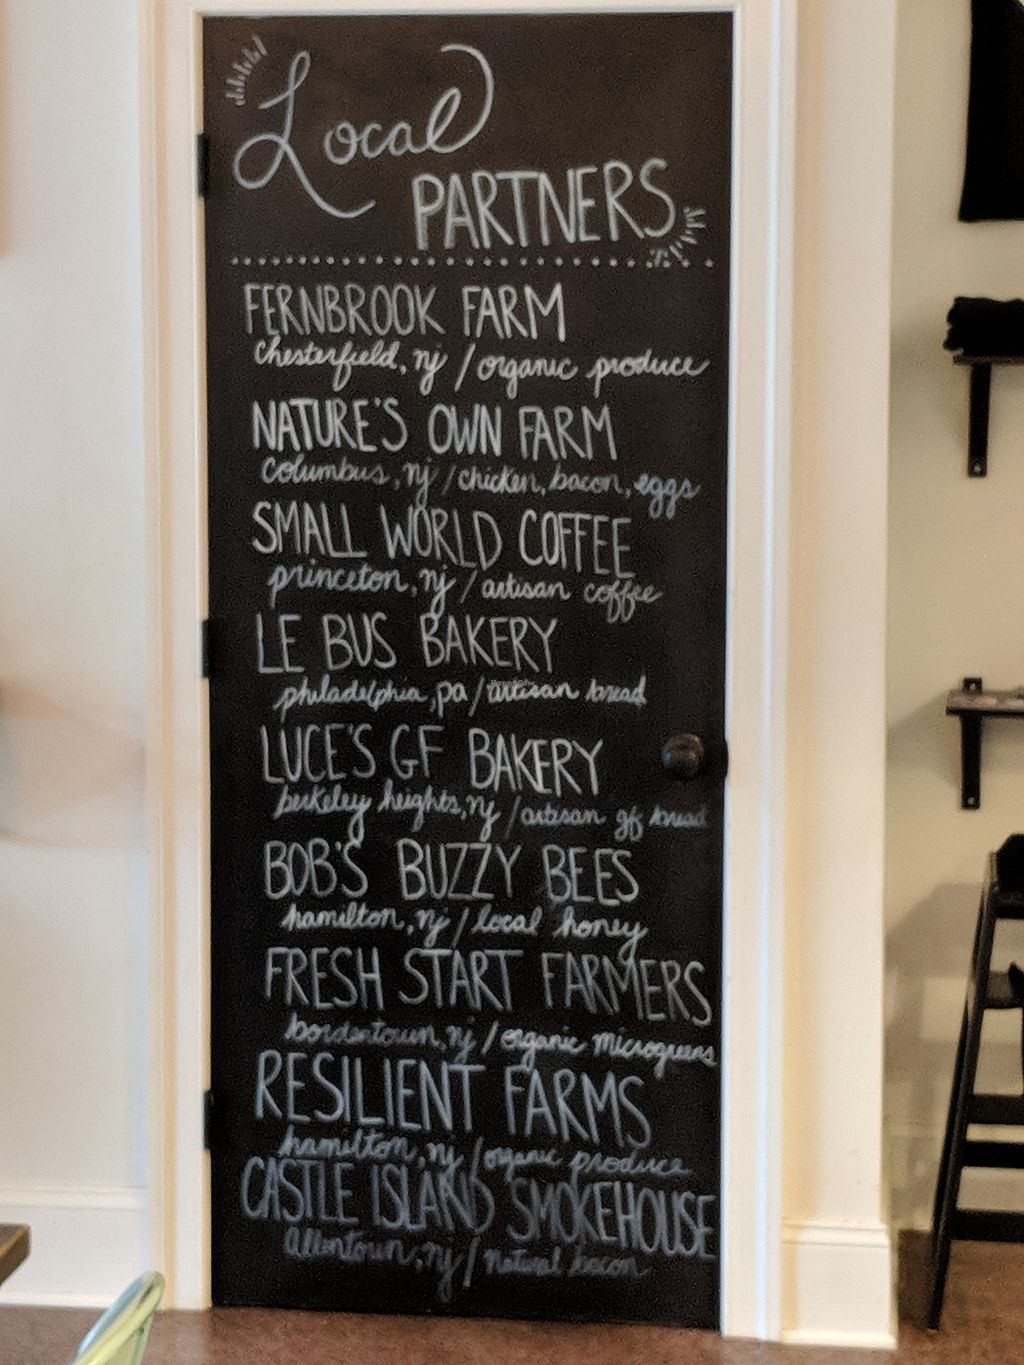 Local
PARTNERS
FERNBROOK FARM
chesterfield, nj / organic produce
NATURE'S OWN FARM
columbus, nj / chicken, bacon, eggs
SMALL WORLD COFFEE
princeton, nj / artisan coffee
LE BUS BAKERY
philadelphia, pa / artisan bread
LUCE'S GF BAKERY
berkeley heights, nj / artisan gf bread
BOB'S BUZZY BEES
hamilton, nj / local honey
FRESH START FARMERS
bordentown, nj / organic microgreens
RESILIENT FARMS
hamilton, nj / organic produce
CASTLE ISLAND SMOKEHOUSE
allentown, nj / natural bacon